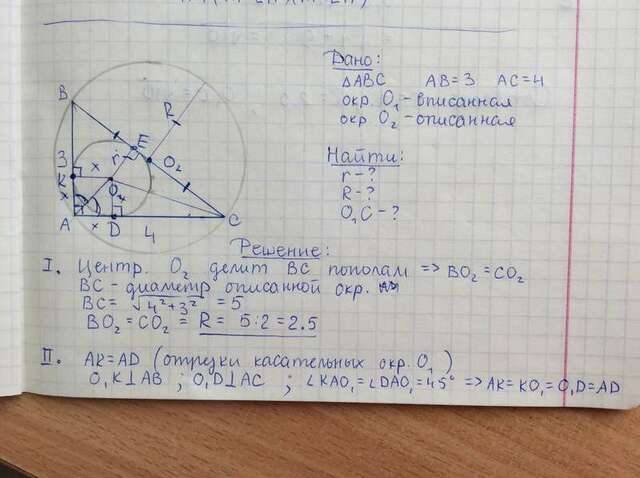 Дано:
△ABC AB=3 AC=4
окр. O₁ - вписанная
окр O₂ - описанная
Найти:
r - ?
R - ?
O₁C - ?
B
R
E
r
O₂
3
x
K
O₁
x
x
A
x
D
4
C
Решение:
I. Центр. O₂ делит BC пополам => BO₂ = CO₂
BC - диаметр описанной окр.
BC = √4²+3² = 5
BO₂ = CO₂ = R = 5:2 = 2.5
II. AK = AD (отрезки касательных окр. O₁)
O₁K⊥AB ; O₁D⊥AC ; ∠KAO₁ = ∠DAO₁ = 45° => AK = KO₁ = O₁D = AD